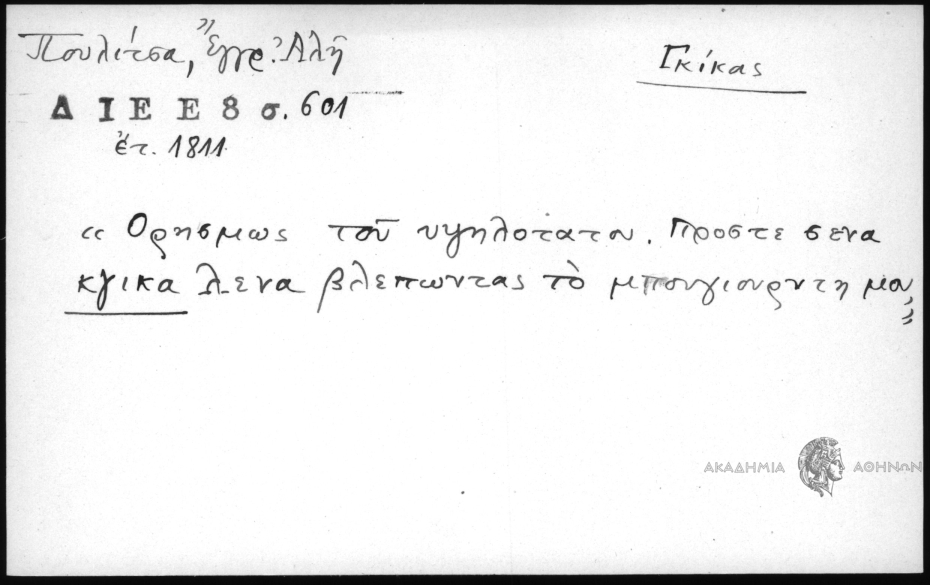 Πουλίτσα, Ἔγγρ. Ἀλῆ
Γκίκας
Δ Ι Ε Ε 8 σ. 601
ἔτ. 1811.
« Ορησμως τοῦ υψηλοτατου. Προστε σενα
κγικα λενα βλεπωντας τὸ μπουγιουρντη μου »
ΑΚΑΔΗΜΙΑ ΑΘΗΝΩΝ